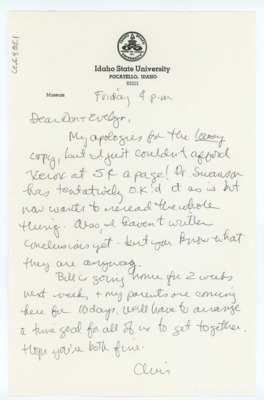 Idaho State University
POCATELLO, IDAHO
83201
Museum
Friday 4 p.m
Dear Don + Evelyn,
My apologies for the lousy
copy, but I just couldn't afford
Xerox at 5¢ a page! Dr. Swanson
has tentatively OK'd it as is but
now wants to reread the whole
thing. Also I haven't written
conclusions yet - but you know what
they are anyway.
Bill is going home for 2 weeks
next week + my parents are coming
here for 10 days. We'll have to arrange
a time good for all of us to get together.
Hope you're both fine.
Chris